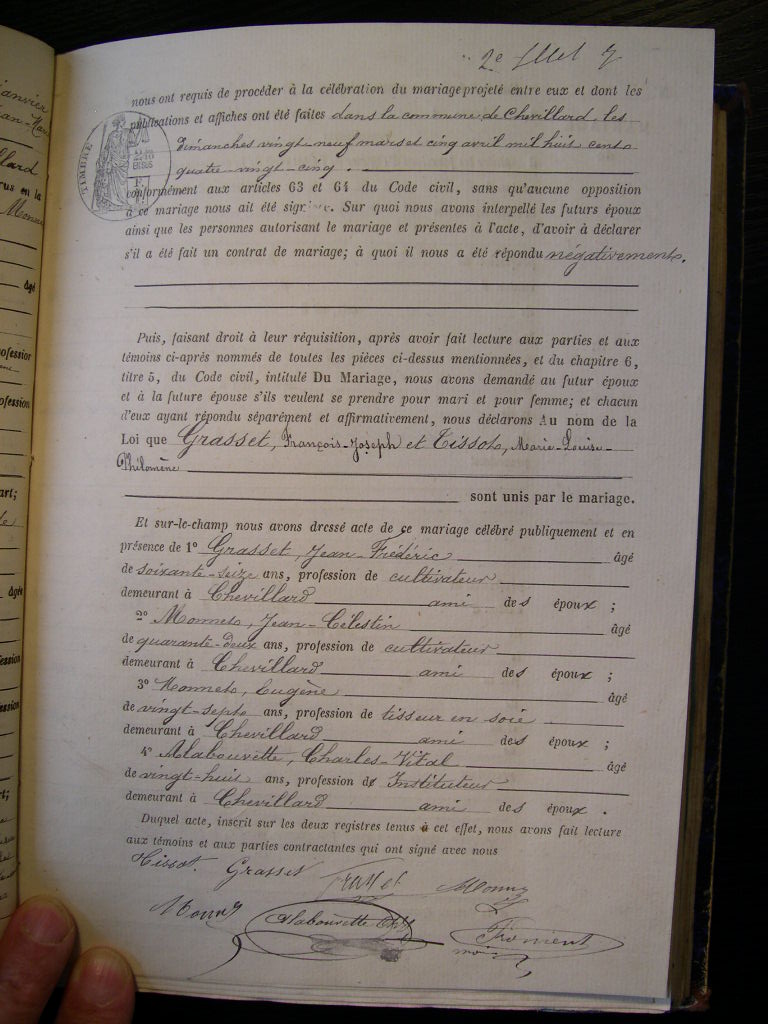 2e fllet 7
nous ont requis de procéder à la célébration du mariage projeté entre eux et dont les
publications et affiches ont été faites dans la commune de Chevillard les
Dimanches vingt-neuf mars et cinq avril mil huit cent
quatre-vingt-cinq.
TIMBRE
conformément aux articles 63 et 64 du Code civil, sans qu'aucune opposition
à ce mariage nous ait été signifiée. Sur quoi nous avons interpellé les futurs époux
ainsi que les personnes autorisant le mariage et présentes à l'acte, d'avoir à déclarer
s'il a été fait un contrat de mariage; à quoi il nous a été répondu négativement.
Puis, faisant droit à leur réquisition, après avoir fait lecture aux parties et aux
témoins ci-après nommés de toutes les pièces ci-dessus mentionnées, et du chapitre 6,
titre 5, du Code civil, intitulé Du Mariage, nous avons demandé au futur époux
et à la future épouse s'ils veulent se prendre pour mari et pour femme; et chacun
d'eux ayant répondu séparément et affirmativement, nous déclarons Au nom de la
Loi que Grasset, François-Joseph et Tissot, Marie-Louise-
Philomène
sont unis par le mariage.
Et sur-le-champ nous avons dressé acte de ce mariage célébré publiquement et en
présence de 1° Grasset, Jean-Frédéric âgé
de soixante-seize ans, profession de cultivateur
demeurant à Chevillard ami des époux ;
2° Monnet, Jean-Célestin âgé
de quarante-deux ans, profession de cultivateur
demeurant à Chevillard ami des époux ;
3° Monnet, Eugène âgé
de vingt-sept ans, profession de tisseur en soie
demeurant à Chevillard ami des époux ;
4° Alabouvette, Charles-Vital âgé
de vingt-huit ans, profession d' Instituteur
demeurant à Chevillard ami des époux .
Duquel acte, inscrit sur les deux registres tenus à cet effet, nous avons fait lecture
aux témoins et aux parties contractantes qui ont signé avec nous
Tissot. Grasset
Alabouvette
Froment